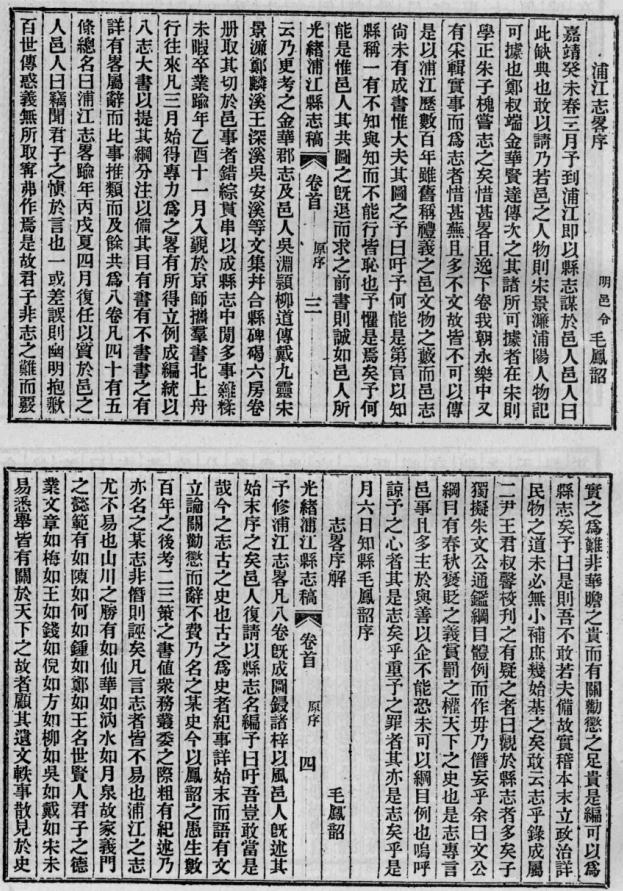 浦江志畧序
明邑令 毛鳳韶
嘉靖癸未春三月予到浦江即以縣志謀於邑人邑人曰
此缺典也敢以請乃若邑之人物則宋景濂浦陽人物記
可據也鄭叔端金華賢達傳次之其諸所可據者在宋則
學正朱子槐嘗志之矣惜甚畧且逸下卷我朝永樂中又
有宋輯實事而為志者惜甚蕪且多不文故皆不可以傳
是以浦江歷數百年雖舊稱禮義之邑文物之藪而邑志
尚未有成書惟大夫其圖之予曰吁予何能是第官以知
縣稱一有不知與知而不能行皆恥也予懼是焉矣予何
能是惟邑人其共圖之旣退而求之前書則誠如邑人所
光緒浦江縣志稿
卷首
原序
三
云乃更考之金華郡志及邑人吳淵頴柳道傳戴九靈宋
景濂鄭麟溪王深溪吳安溪等文集幷合縣碑碣六房卷
册取其切於邑事者錯綜貫串以成縣志中閒多事雜糅
未暇卒業踰年乙酉十一月入覲於京師攜羣書北上舟
行往來凡三月始得專力為之畧有所得立例成編統以
八志大書以提其綱分注以備其目有書有不書書之有
詳有畧屬辭而比事推類而及餘共為八卷凡四十有五
條總名曰浦江志畧踰年丙戌夏四月復任以質於邑之
人邑人曰竊聞君子之愼於言也一或差誤則幽明抱歉
百世傳惑義無所取寗弗作焉是故君子非志之難而覈
實之為難非華贍之貴而有關勸懲之足貴是編可以為
縣志矣予曰是則吾不敢若夫備故實稽本末立政治詳
民物之道未必無小補庶幾始基之矣敢云志乎錄成屬
二尹王君叔馨校刋之有疑之者曰觀於縣志者多矣子
獨擬朱文公通鑑綱目體例而作毋乃僭妄乎余曰文公
綱目有春秋褒貶之義賞罰之權天下之史也是志專言
邑事且多主於與善以企不能恐未可以綱目例也嗚呼
諒予之心者其是志矣乎重予之罪者其亦是志矣乎是
月六日知縣毛鳳韶序
志畧序解
毛鳳韶
光緒浦江縣志稿
卷首
原序
四
予修浦江志畧凡八卷旣成圖鋟諸梓以風邑人旣述其
始末序之矣邑人復請以縣志名編予曰吁吾豈敢當是
哉今之志古之史也古之為史者紀事詳始末而語有文
立論關勸懲而辭不費乃名之某史今以鳳韶之愚生數
百年之後考二三策之書値衆務叢委之際粗有紀述乃
亦名之某志非僭則誣矣凡言志者皆不易也浦江之志
尤不易也山川之勝有如仙華如泑水如月泉故家義門
之懿範有如陳如何如鍾如鄭如王名世賢人君子之德
業文章如梅如王如錢如倪如方如柳如吳如戴如宋未
易悉舉皆有關於天下之故者顧其遺文軼事散見於史